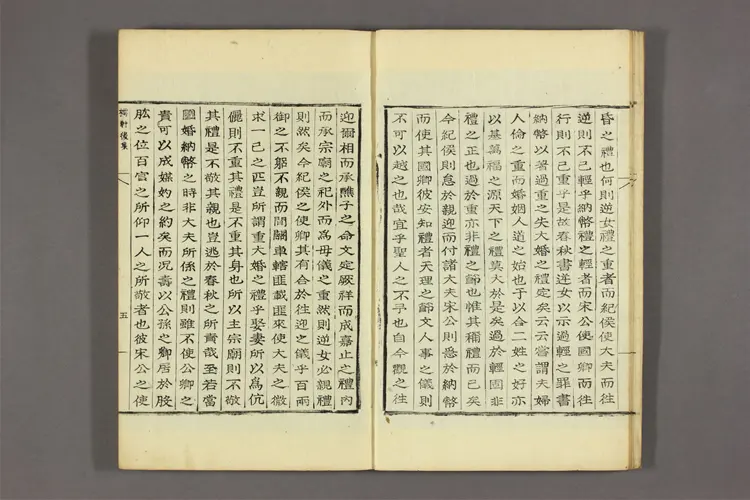 昏之禮也何則逆女禮之重者而紀侯使大夫而往
逆則不已輕乎納幣禮之輕者而宋公使國卿而往
行則不已重乎是故春秋書逆女以示過輕之罪書
納幣以著過重之失大婚之禮定矣云云嘗謂夫婦
人倫之重而婚姻人道之始也于以合二姓之好亦
以基萬福之源天下之禮莫大於是矣過於輕固非
禮之正也過於重亦非禮之節也惟其稱禮而已矣
今紀侯則怠於親迎而付諸大夫宋公則急於納幣
而使其國卿彼安知禮者天理之節文人事之儀則
不可以越之也哉宜乎聖人之不予也自今觀之往
迎爾相而承醮子之命文定厥祥而成嘉止之禮內
而承宗廟之祀外而爲母儀之重然則逆女必親禮
則然矣今紀侯之使卿其有合於往迎之儀乎百兩
御之不躬不親而間關車轄匪載匪來使大夫之微
求一己之匹豈所謂重大婚之禮乎娶妻所以爲伉
儷則不重其禮是不重其身也所以主宗廟則不敬
其禮是不敬其親也豈逃於春秋之所責哉至若當
國婚納幣之時非大夫所係之禮則雖不使公卿之
貴可以成媒妁之約矣而況壽以公孫之卿居於股
肱之位百官之所仰一人之所敬者也彼宋公之使
軒後集
五